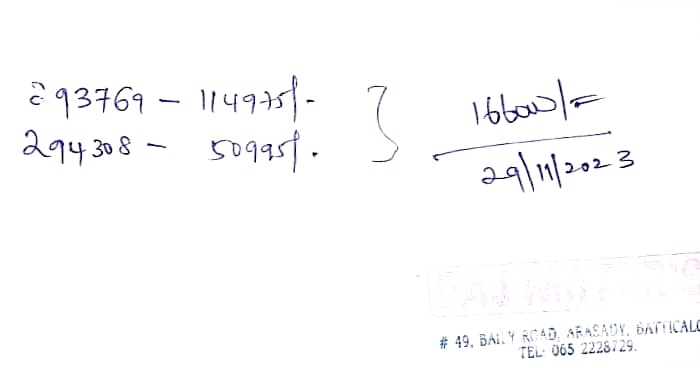 293769 - 114975/-
294308 - 50995/-
166000/=
29/11/2023
# 49, BAILY ROAD, ARASADY, BATTICALO
TEL: 065 2228729.